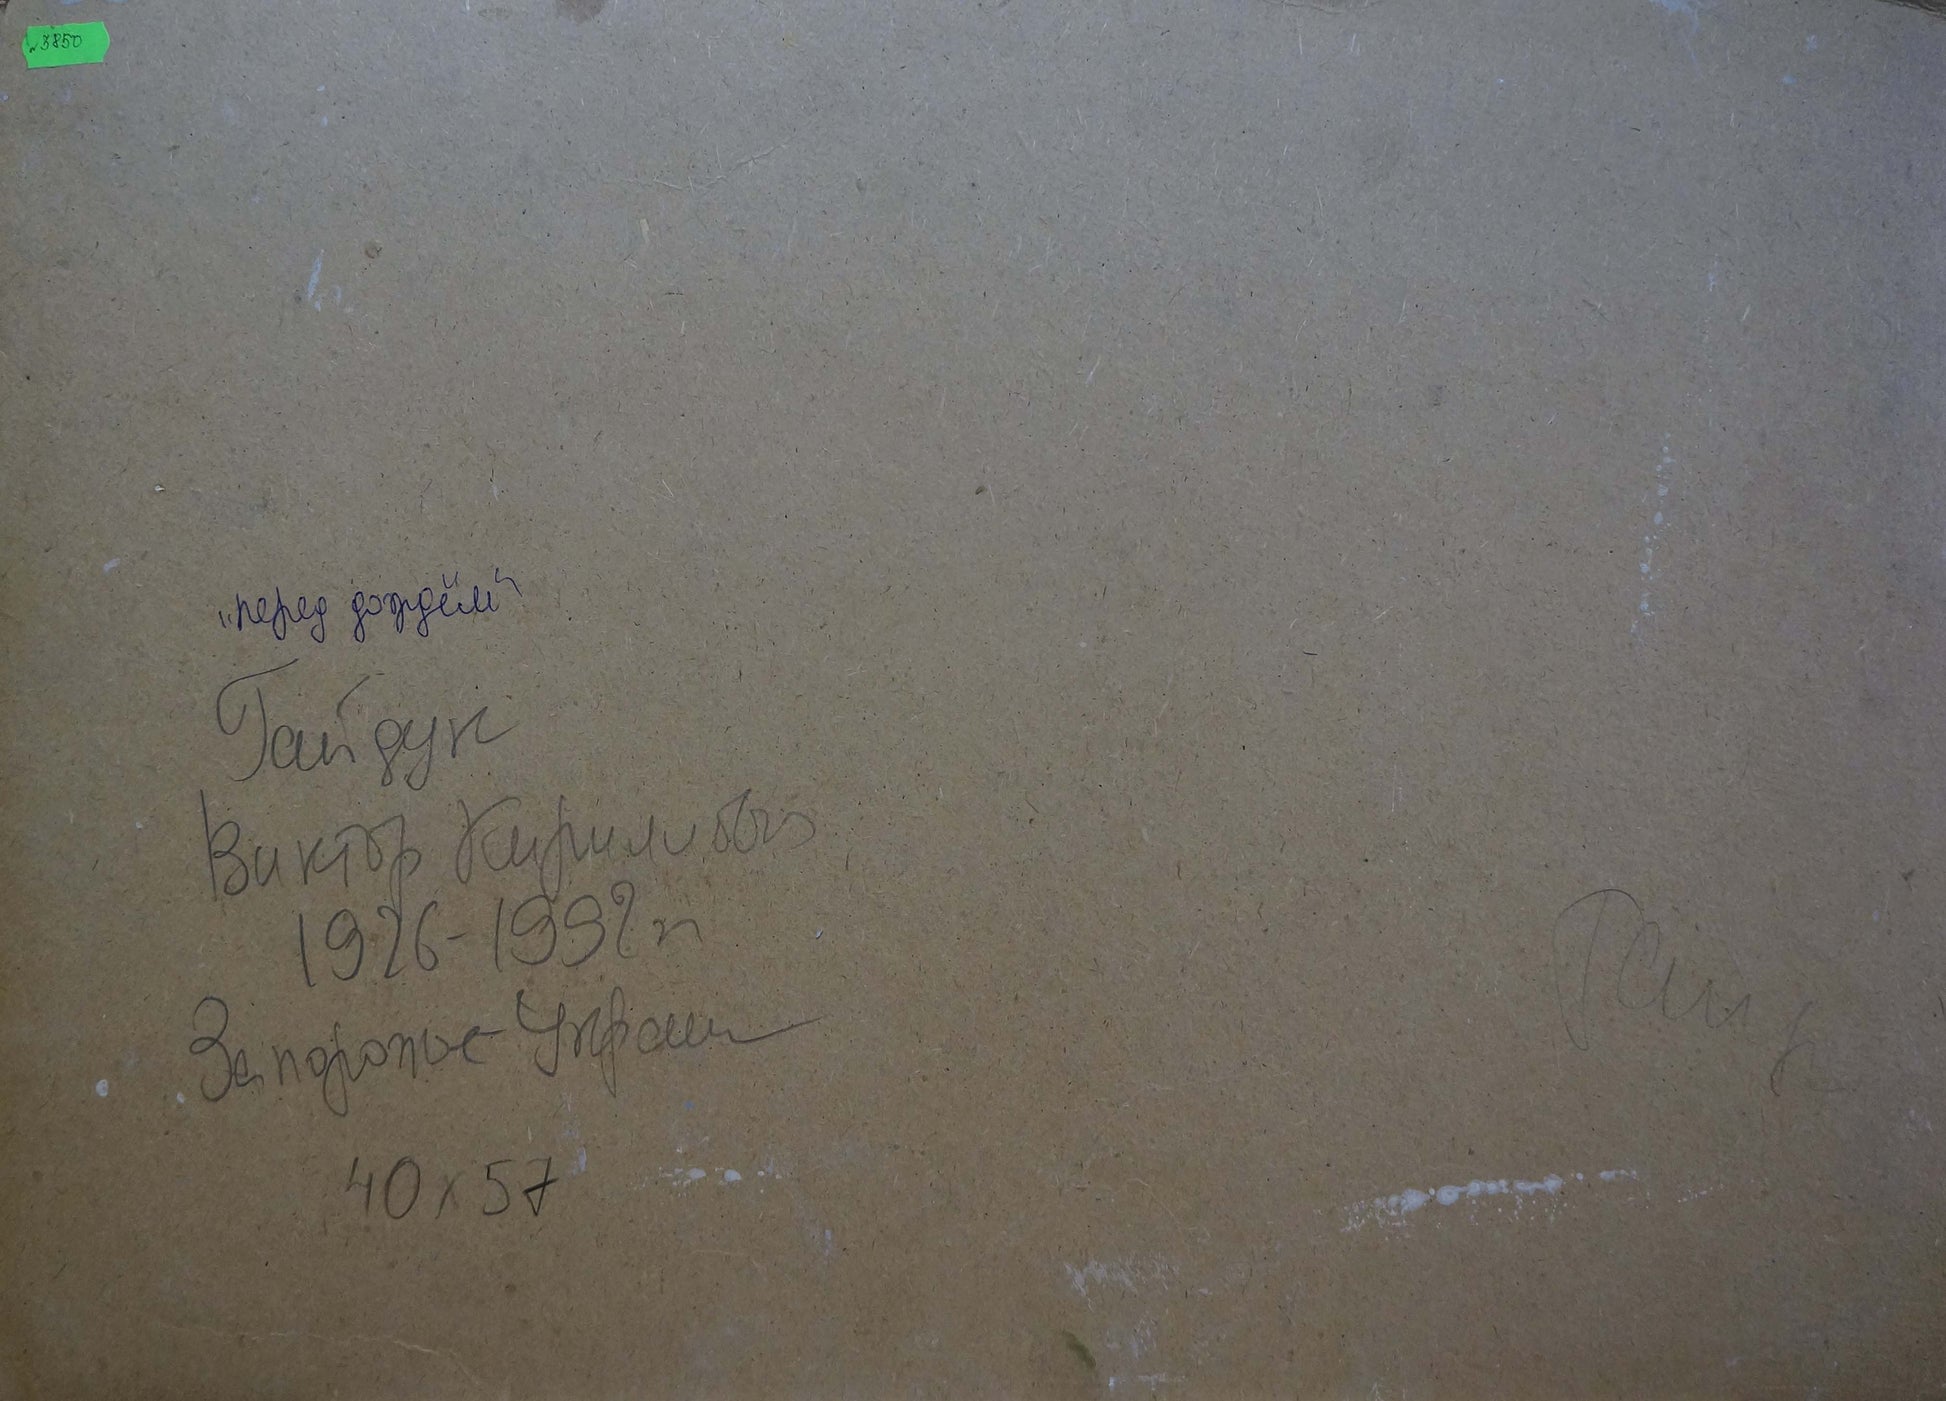 3850
„перед дождём“
Гайдук
Виктор Кирилович
1926-1992 гг
Запорожье Украина
40 x 57